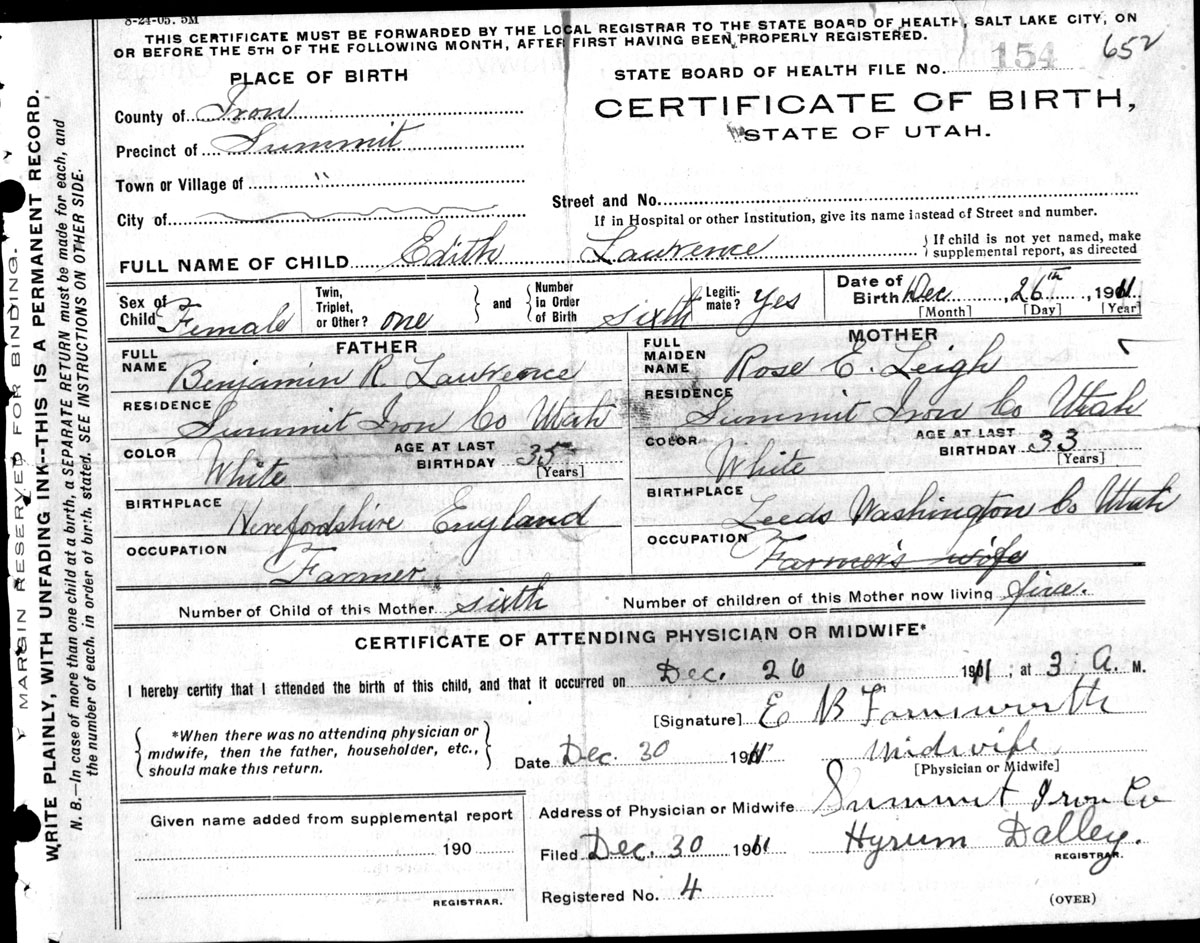 8-24-05. 5M
THIS CERTIFICATE MUST BE FORWARDED BY THE LOCAL REGISTRAR TO THE STATE BOARD OF HEALTH, SALT LAKE CITY, ON
OR BEFORE THE 5TH OF THE FOLLOWING MONTH, AFTER FIRST HAVING BEEN PROPERLY REGISTERED.
652
PLACE OF BIRTH
County of Iron
Precinct of Summit
Town or Village of "
City of
STATE BOARD OF HEALTH FILE No. 154
CERTIFICATE OF BIRTH,
STATE OF UTAH.
Street and No.
If in Hospital or other Institution, give its name instead of Street and number.
FULL NAME OF CHILD Edith Lawrence
If child is not yet named, make
supplemental report, as directed
Sex of Child Female
Twin, Triplet, or Other? one
and
Number in Order of Birth sixth
Legitimate? Yes
Date of Birth Dec 26th, 1911
[Month] [Day] [Year]
FATHER
FULL NAME Benjamin R. Lawrence
RESIDENCE Summit Iron Co Utah
COLOR White
AGE AT LAST BIRTHDAY 35
[Years]
BIRTHPLACE Herefordshire England
OCCUPATION Farmer
MOTHER
FULL MAIDEN NAME Rose E. Leigh
RESIDENCE Summit Iron Co Utah
COLOR White
AGE AT LAST BIRTHDAY 33
[Years]
BIRTHPLACE Leeds Washington Co Utah
OCCUPATION Farmer's wife
Number of Child of this Mother sixth
Number of children of this Mother now living five.
CERTIFICATE OF ATTENDING PHYSICIAN OR MIDWIFE*
I hereby certify that I attended the birth of this child, and that it occurred on Dec. 26 1911; at 3 A. M.
*When there was no attending physician or
midwife, then the father, householder, etc.,
should make this return.
[Signature] E B Farnsworth
Date Dec. 30 1911
Midwife
[Physician or Midwife]
Given name added from supplemental report
190
REGISTRAR.
Address of Physician or Midwife Summit Iron Co
Filed Dec. 30 1911
Hyrum Dalley.
REGISTRAR.
Registered No. 4
(OVER)
MARGIN RESERVED FOR BINDING.
WRITE PLAINLY, WITH UNFADING INK--THIS IS A PERMANENT RECORD.
N. B.—In case of more than one child at a birth, a SEPARATE RETURN must be made for each, and
the number of each, in order of birth, stated. SEE INSTRUCTIONS ON OTHER SIDE.